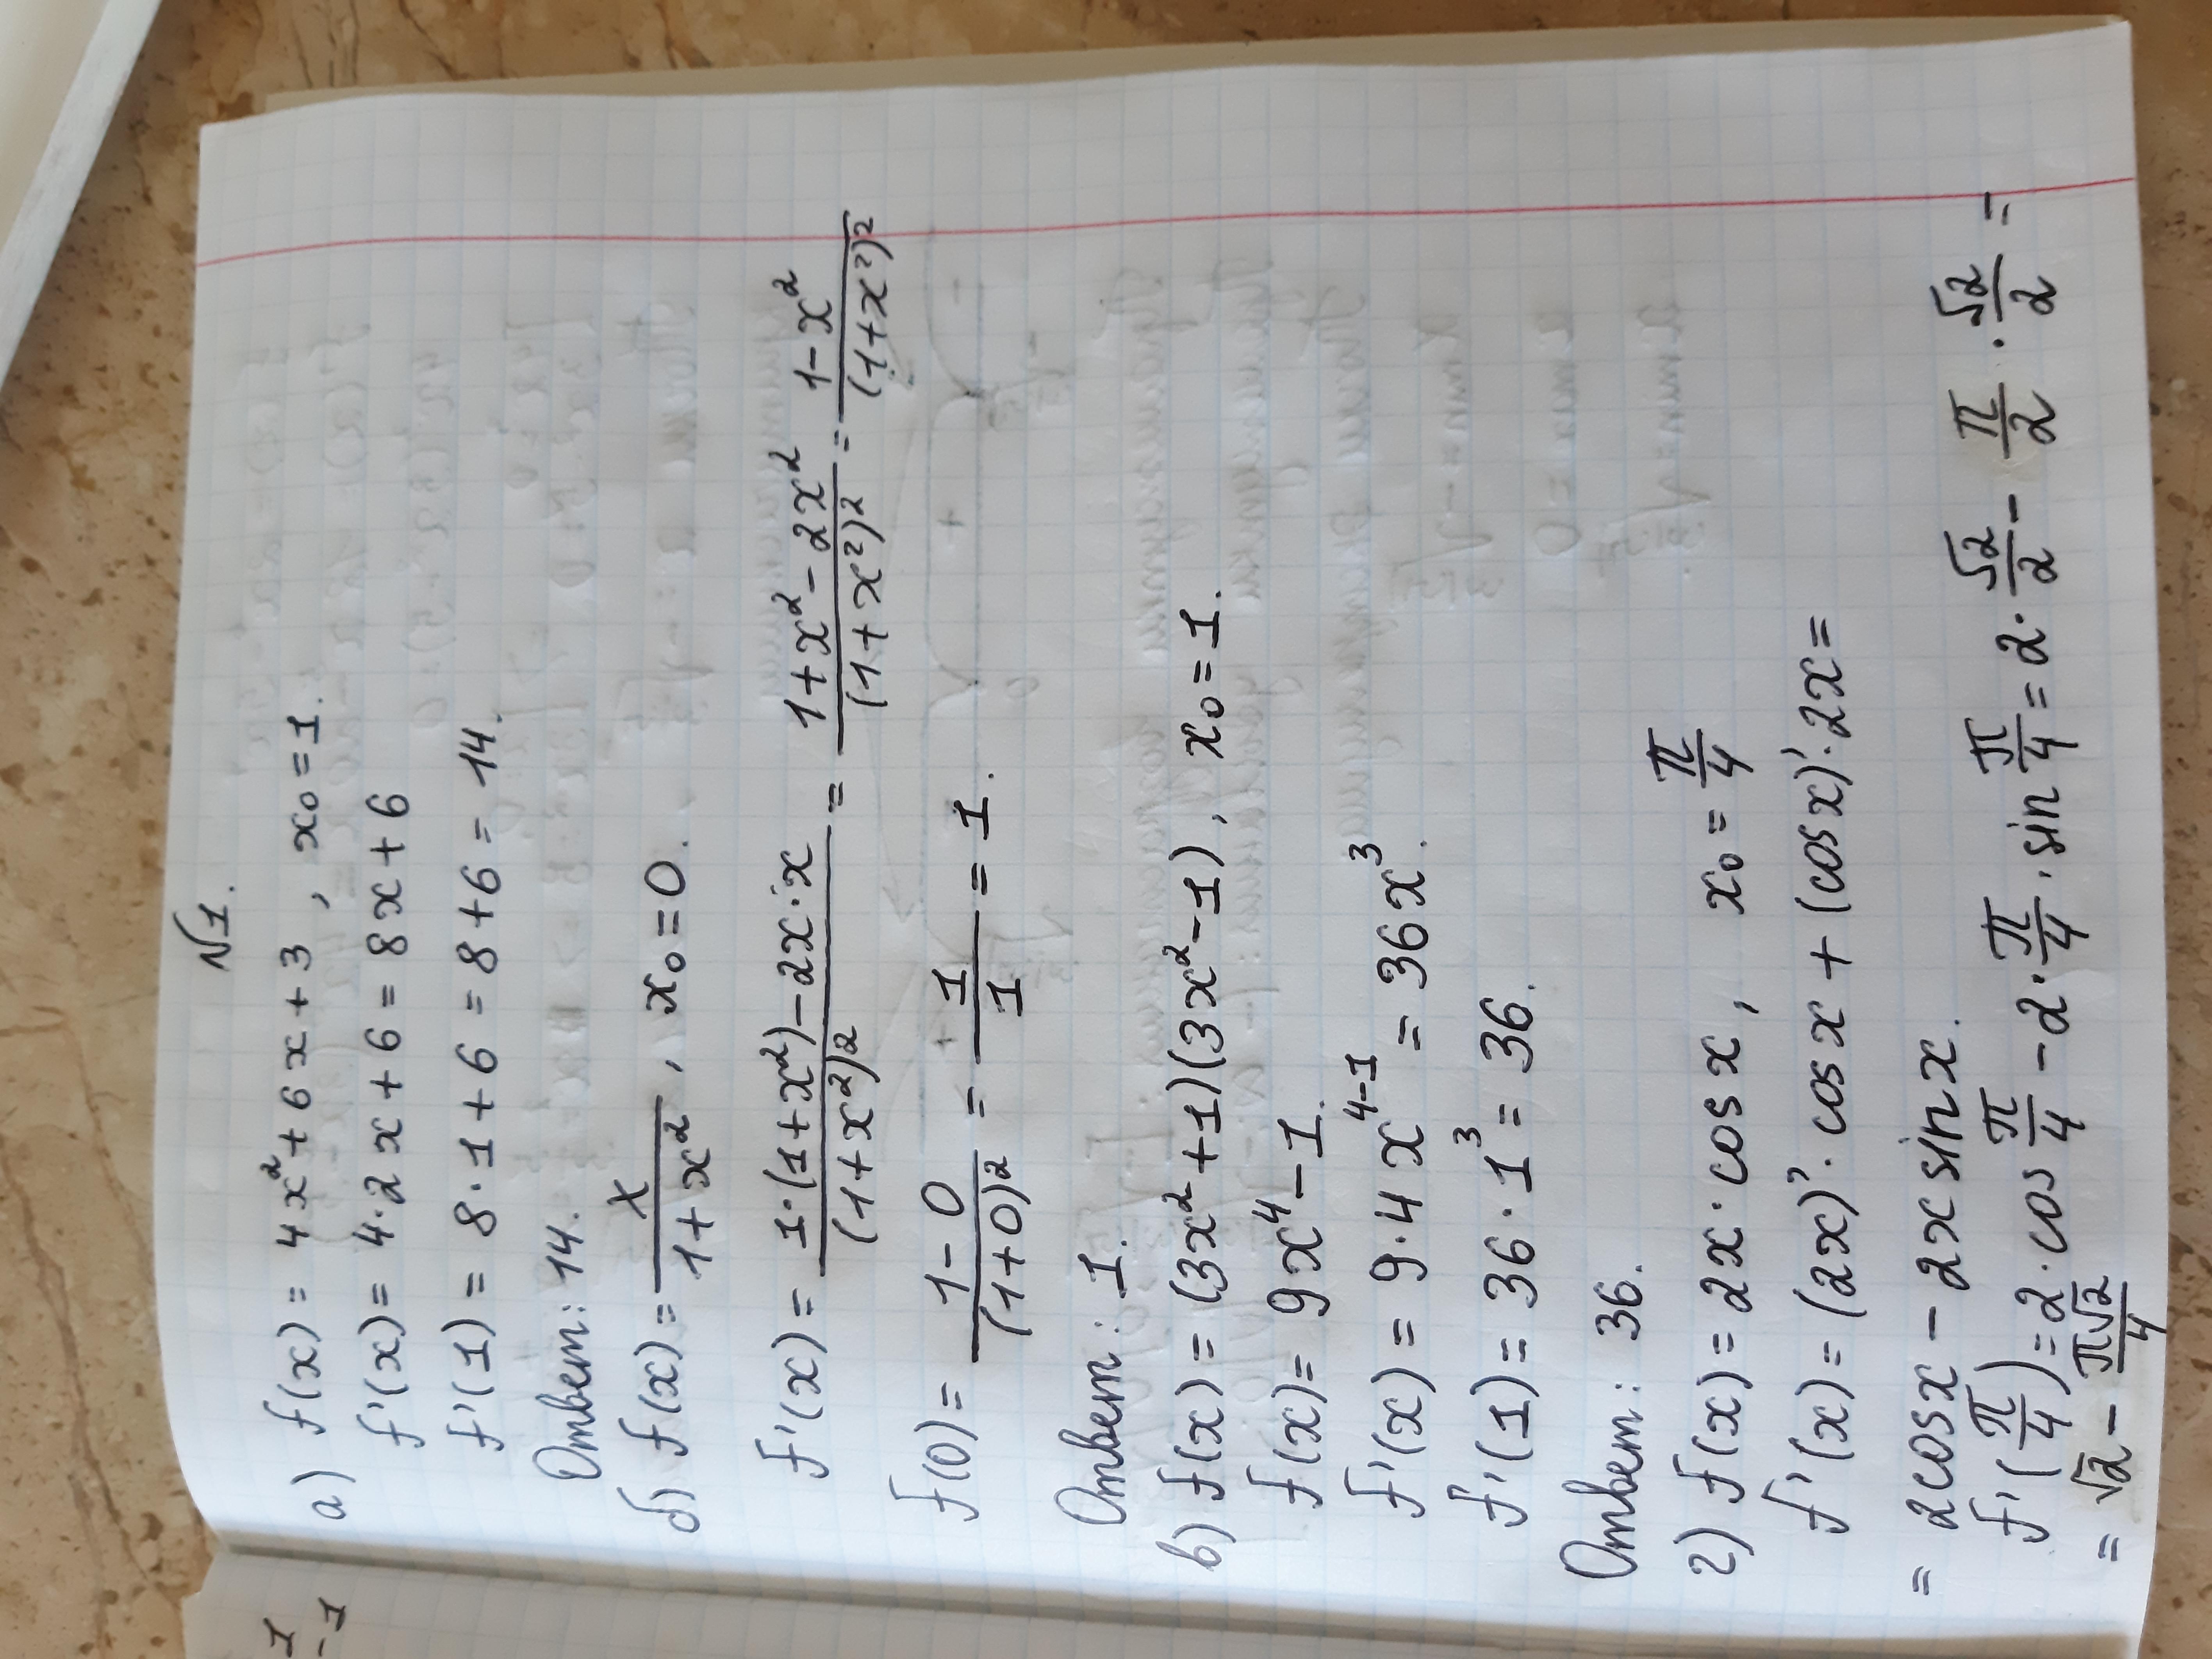 №1.
а) f(x) = 4x² + 6x + 3, x₀ = 1.
f'(x) = 4·2x + 6 = 8x + 6
f'(1) = 8·1 + 6 = 8 + 6 = 14.
Ответ: 14.
б) f(x) = x/(1+x²), x₀ = 0.
f'(x) = (1·(1+x²) - 2x·x)/(1+x²)² = (1+x²-2x²)/(1+x²)² = (1-x²)/(1+x²)²
f(0) = (1-0)/(1+0)² = 1/1 = 1.
Ответ: 1.
в) f(x) = (3x²+1)(3x²-1), x₀ = 1.
f(x) = 9x⁴ - 1.
f'(x) = 9·4x⁴⁻¹ = 36x³.
f'(1) = 36·1³ = 36.
Ответ: 36.
г) f(x) = 2x·cos x, x₀ = π/4
f'(x) = (2x)'·cos x + (cos x)'·2x =
= 2cos x - 2x sin x.
f'(π/4) = 2·cos π/4 - 2·π/4·sin π/4 = 2·√2/2 - π/2·√2/2 =
= √2 - π√2/4
1
-1